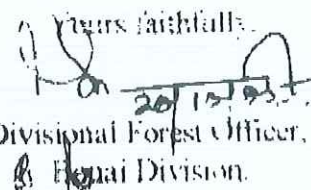 Yours faithfully,
Divisional Forest Officer,
Bonai Division.